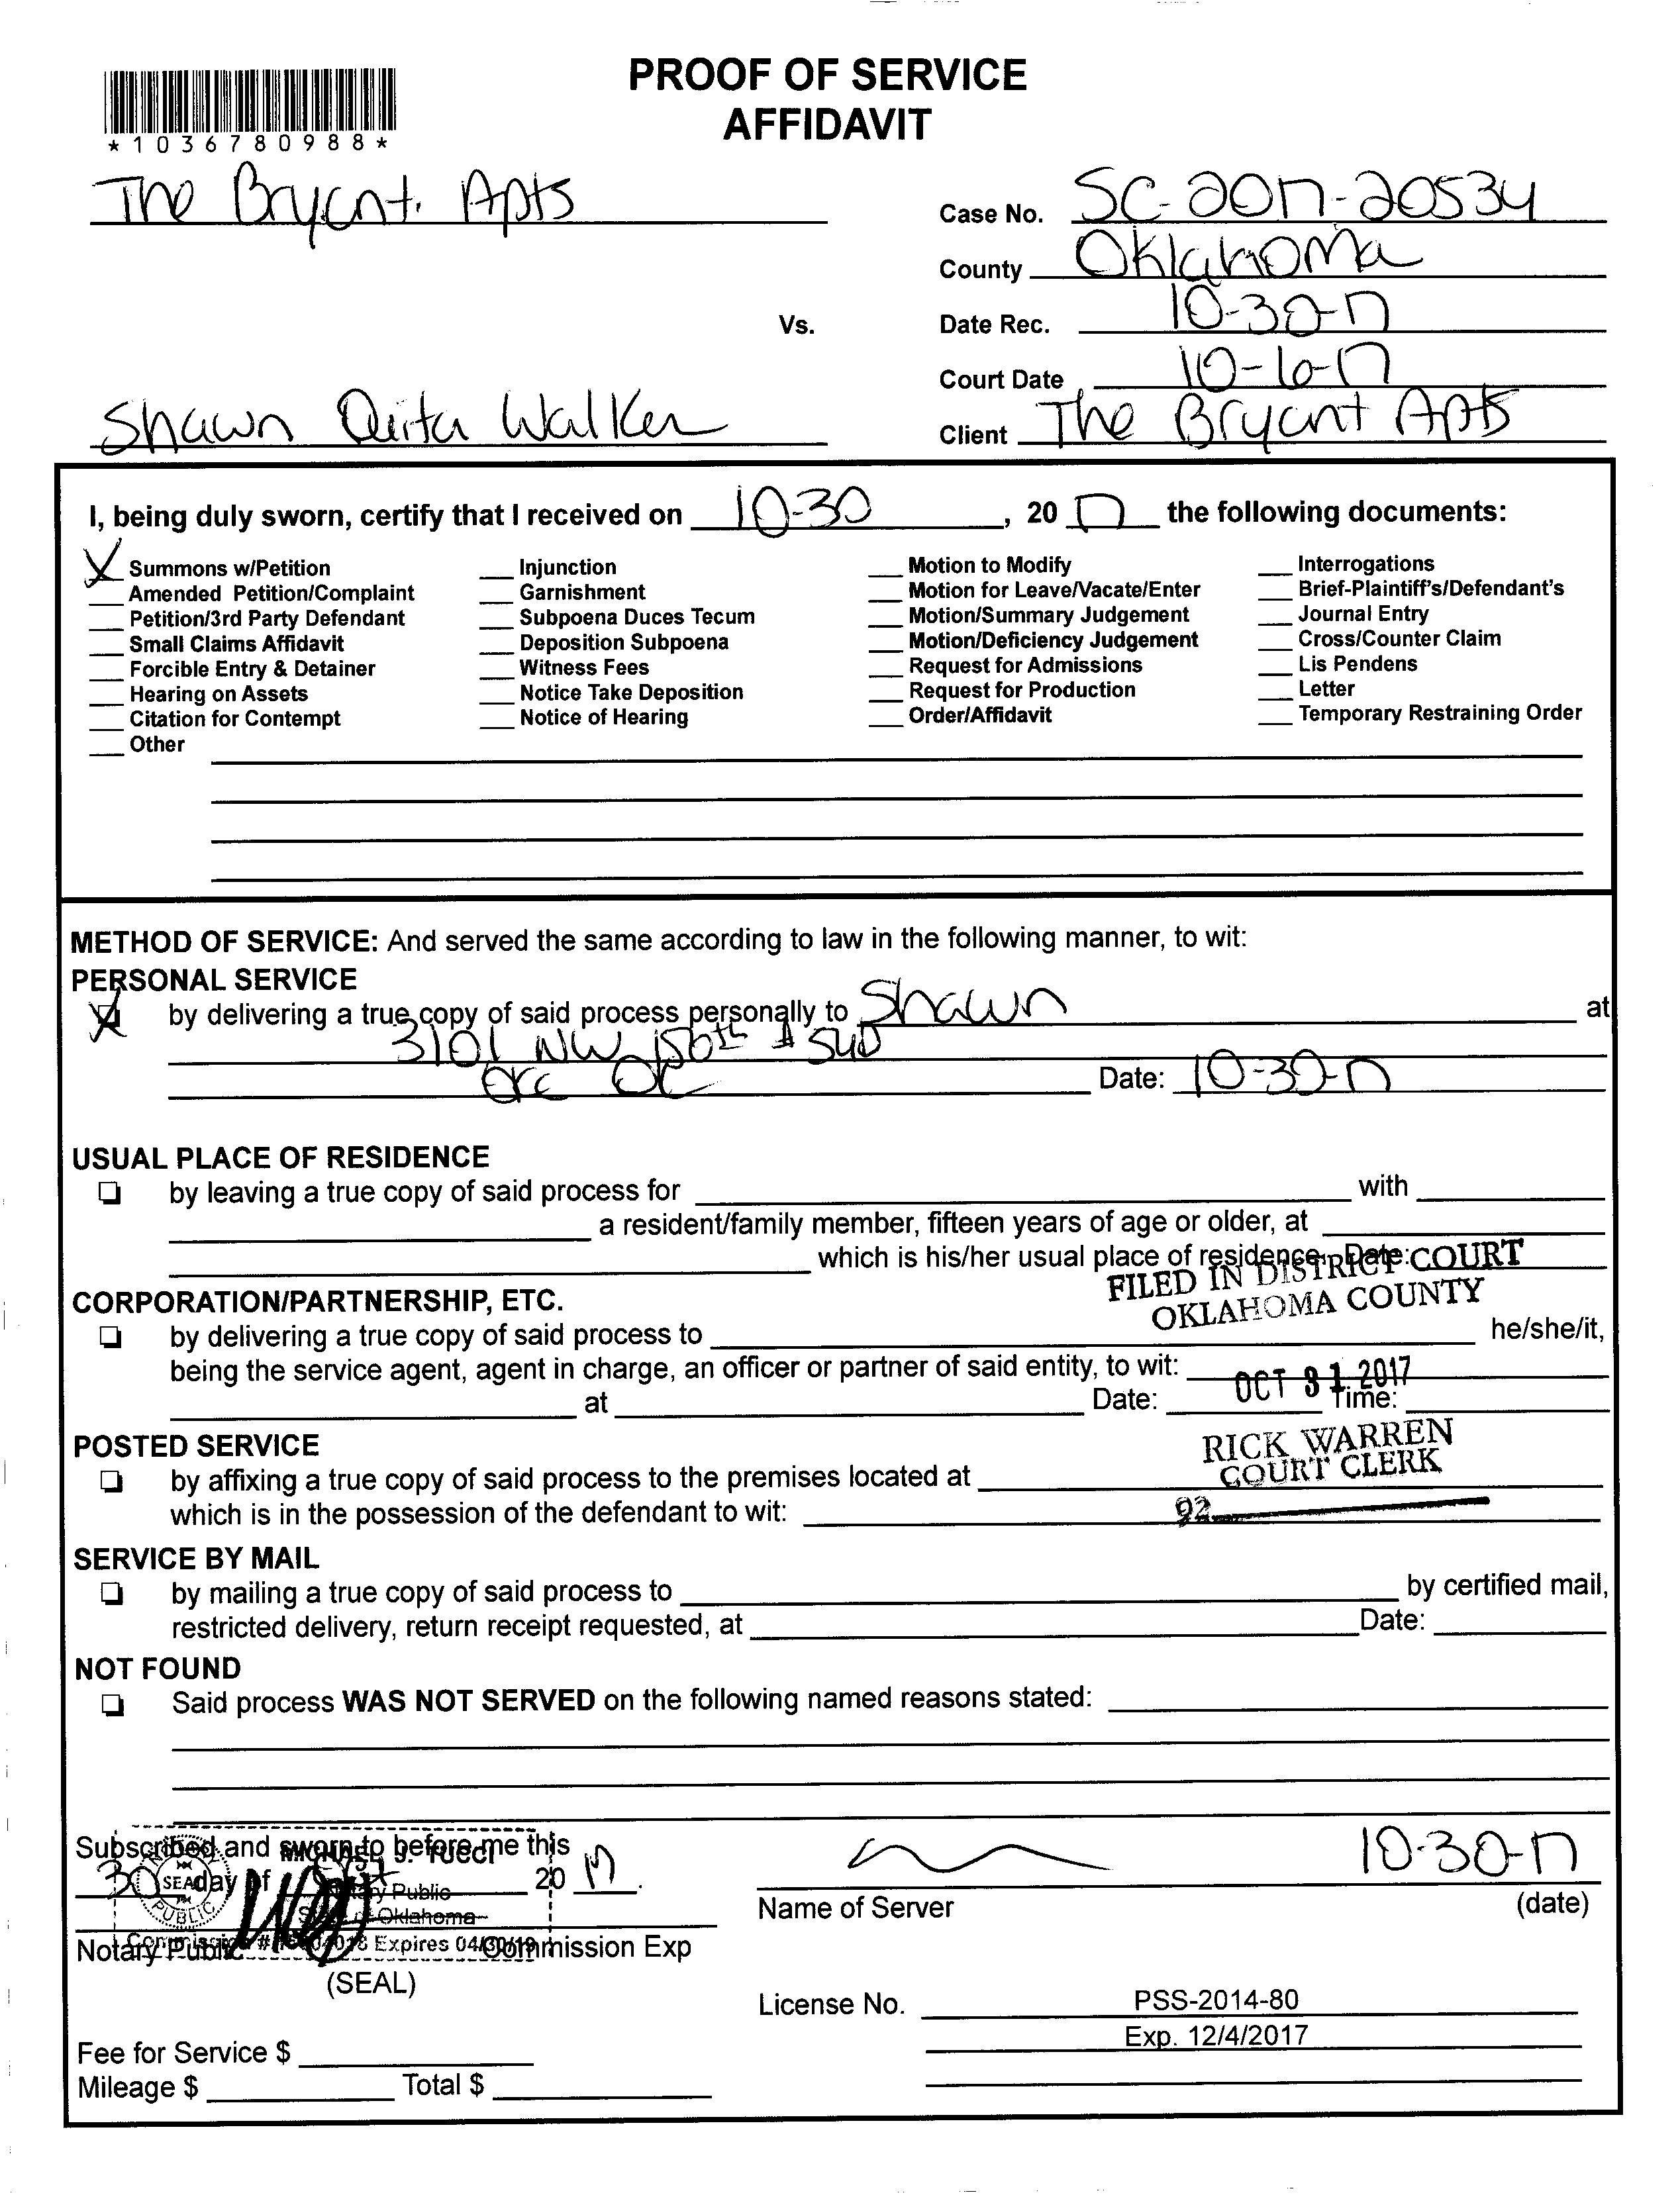 PROOF OF SERVICE
AFFIDAVIT
*1036780988*
The Bryant Apts
Case No. SC-2017-20534
County Oklahoma
Vs.
Date Rec. 10-30-17
Court Date 10-6-17
Shawn Qeita Walker
Client The Bryant Apts
I, being duly sworn, certify that I received on 10-30, 20 17 the following documents:
X Summons w/Petition
Amended Petition/Complaint
Petition/3rd Party Defendant
Small Claims Affidavit
Forcible Entry & Detainer
Hearing on Assets
Citation for Contempt
Other
Injunction
Garnishment
Subpoena Duces Tecum
Deposition Subpoena
Witness Fees
Notice Take Deposition
Notice of Hearing
Motion to Modify
Motion for Leave/Vacate/Enter
Motion/Summary Judgement
Motion/Deficiency Judgement
Request for Admissions
Request for Production
Order/Affidavit
Interrogations
Brief-Plaintiff's/Defendant's
Journal Entry
Cross/Counter Claim
Lis Pendens
Letter
Temporary Restraining Order
METHOD OF SERVICE: And served the same according to law in the following manner, to wit:
PERSONAL SERVICE
X by delivering a true copy of said process personally to Shawn at
3101 NW 150th # 540
OKC OK Date: 10-30-17
USUAL PLACE OF RESIDENCE
by leaving a true copy of said process for with
a resident/family member, fifteen years of age or older, at
which is his/her usual place of residence. Date:
FILED IN DISTRICT COURT
OKLAHOMA COUNTY
CORPORATION/PARTNERSHIP, ETC.
by delivering a true copy of said process to he/she/it,
being the service agent, agent in charge, an officer or partner of said entity, to wit:
OCT 31 2017
at Date: Time:
RICK WARREN
COURT CLERK
92
POSTED SERVICE
by affixing a true copy of said process to the premises located at
which is in the possession of the defendant to wit:
SERVICE BY MAIL
by mailing a true copy of said process to by certified mail,
restricted delivery, return receipt requested, at Date:
NOT FOUND
Said process WAS NOT SERVED on the following named reasons stated:
Subscribed and sworn to before me this
30 day of Oct 20 17.
MICHAEL J. TUCCI
Notary Public
State of Oklahoma
SEAL
NOTARY PUBLIC
Commission # Expires 04/30/19
Notary Public Commission Exp
(SEAL)
10-30-17
Name of Server (date)
License No. PSS-2014-80
Exp. 12/4/2017
Fee for Service $
Mileage $ Total $